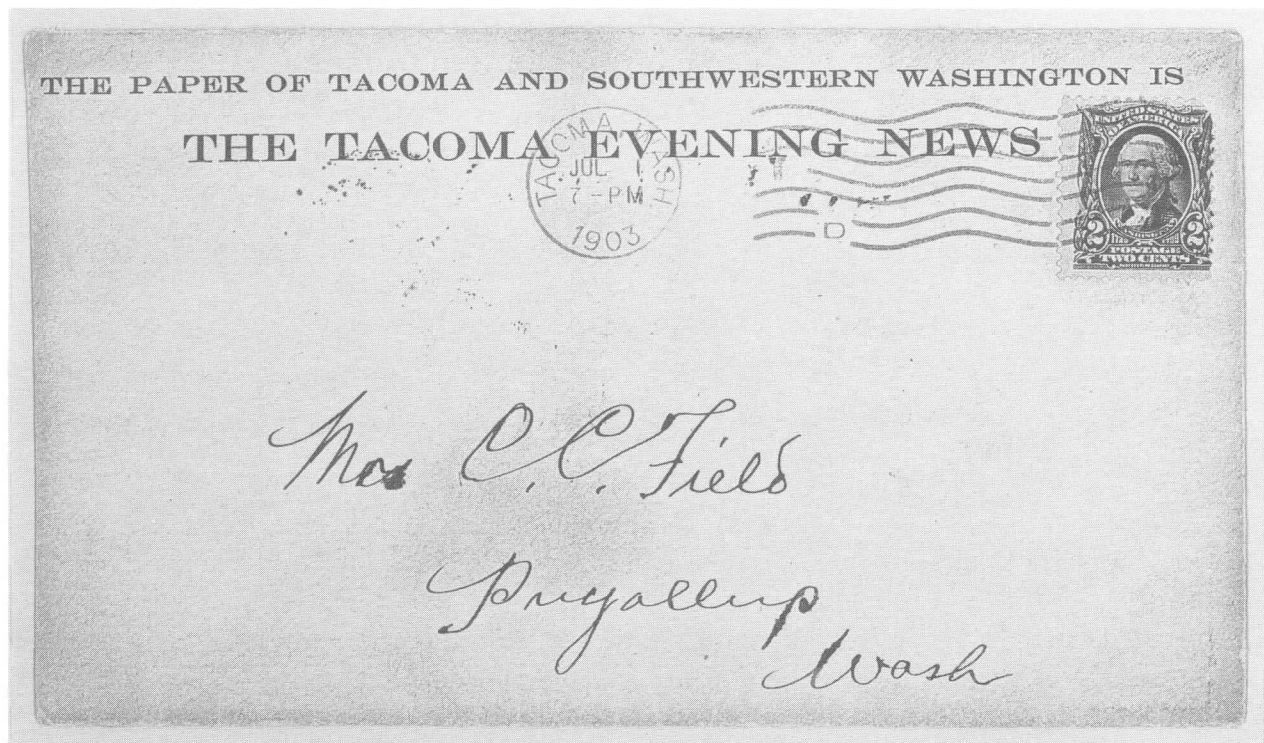 THE PAPER OF TACOMA AND SOUTHWESTERN WASHINGTON IS
THE TACOMA EVENING NEWS
TACOMA WASH
JUL 1
7-PM
1903
D
UNITED STATES
OF AMERICA
2 2
POSTAGE
TWO CENTS
Mrs C. C. Field
Puyallup
Wash